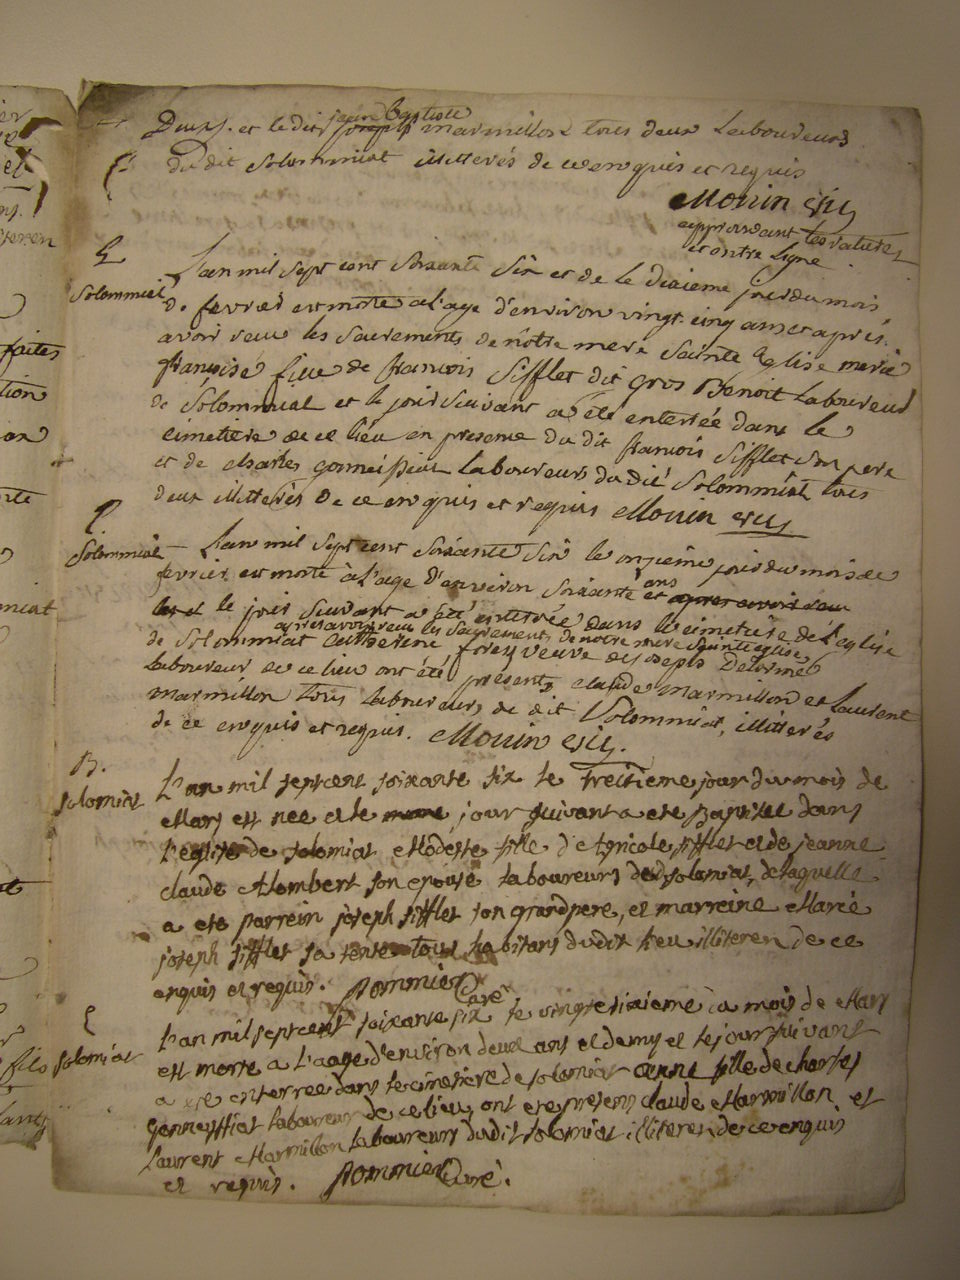 Deux J. et le dit jean Baptiste
joseph marmillon tous deux laboureurs
du dit Solommiat illitterés de ce enquis et requis
Monin vic
approuvant les ratures
et contre ligne
S.
Solommiat
L'an mil sept cent soixante six et de le dixieme jour du mois
de fevrier est morte a l'age d'environ vingt cinq ans et aprés
avoir reçu les sacrements de nôtre mere Sainte Eglise marie
françoise fille de francois Sifflet dit gros Benoit laboureur
de Solommiat et le jour suivant a été enterrée dans le
cimetiere de ce lieu en presence du dit francois Sifflet son pere
et de charles laboureurs du dit Solommiat tous
deux illitterés de ce enquis et requis Monin vic
S.
Solommiat
L'an mil sept cent soixante six le onzieme jour du mois de
fevrier est morte à l'age d'environ soixante ans et apres avoir reçu
les et le jour suivant a été enterrée dans le cimetiere de l'eglise
apres avoir reçu les sacrements de notre mere Sainte eglise
de Solommiat catherine forey veuve de joseph Delorme
laboureur de ce lieu ont été présents claude marmillon et Laurent
marmillon tous laboureurs de dit Solommiat, illitterés
de ce enquis et requis. Monin vic.
B.
solomiat
L'an mil septcent soixante six le treitieme jour du mois de
Mars est nee et le meme jour suivant a ete baptisee dans
l'eglise de solomiat Modeste fille d'Agricole sifflet et de jeanne
claude Alombert son epouse laboureurs de solomiat, de laquelle
a ete parrein joseph sifflet son grandpere, et marreine Marie
joseph sifflet sa tente tous habitans dudit lieu illiteren de ce
enquis et requis. pommier Curé
S
solomiat
L'an mil septcent soixante six le vingtesixieme du mois de Mars
est morte a l'aage d'environ deux ans et demy et le jour suivant
a ete enterree dans le cimetiere de solomiat anne fille de charles
laboureur de ce lieu, ont ete presens claude Marmillon et
laurent Marmillon laboureurs dudit solomiat illiteren de ce enquis
et requis. pommier Curé.